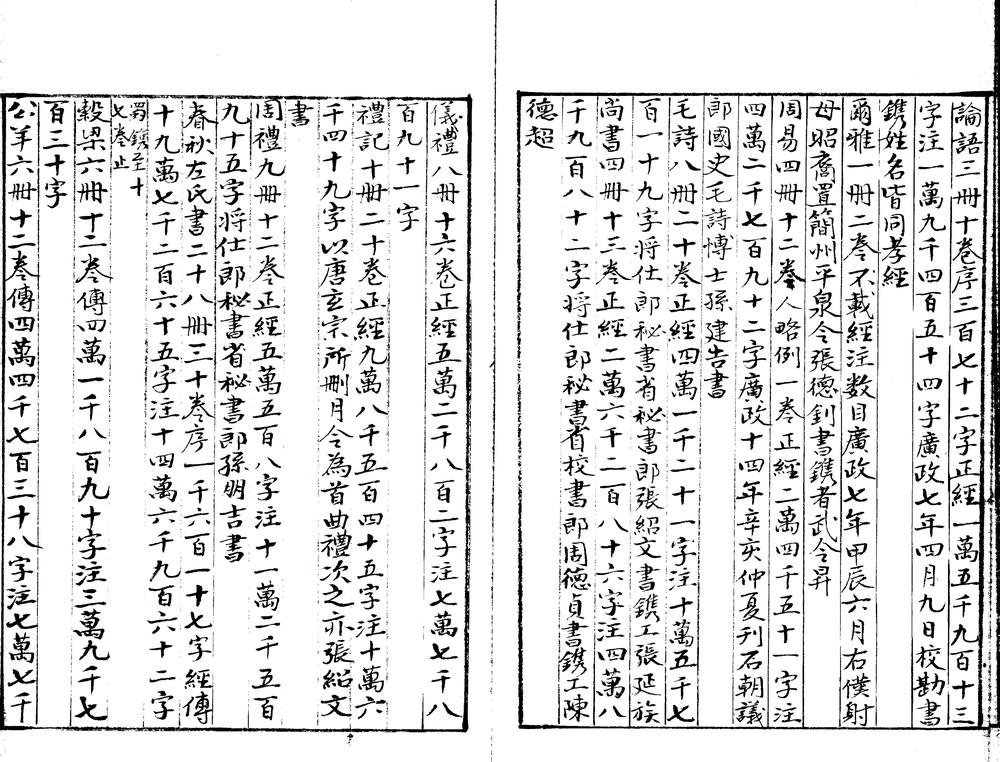 論語三冊十卷序三百七十二字正經一萬五千九百十三
字注一萬九千四百五十四字廣政七年四月九日校勘書
鐫姓名皆同孝經
爾雅一冊二卷不載經注數目廣政七年甲辰六月右僕射
毋昭裔置簡州平泉令張德釗書鐫者武令昇
周易四冊十二卷人略例一卷正經二萬四千五十一字注
四萬二千七百九十二字廣政十四年辛亥仲夏刊石朝議
郎國史毛詩博士孫逢吉書
毛詩八冊二十卷正經四萬一千二十一字注十萬五千七
百一十九字將仕郎秘書省秘書郎張紹文書鐫工張延族
尚書四冊十三卷正經二萬六千二百八十六字注四萬八
千九百八十二字將仕郎秘書省校書郎周德貞書鐫工陳
德超
儀禮八冊十六卷正經五萬二千八百二字注七萬七千八
百九十一字
禮記十冊二十卷正經九萬八千五百四十五字注十萬六
千四十九字以唐玄宗所刪月令為首曲禮次之亦張紹文
書
周禮九冊十二卷正經五萬五百八字注十一萬二千五百
九十五字將仕郎秘書省秘書郎孫朋吉書
春秋左氏書二十八冊三十卷序一千六百一十七字經傳
十九萬七千二百六十五字注十四萬六千九百六十二字
蜀鐫至十
七卷止
穀梁六冊十二卷傳四萬一千八百九十字注三萬九千七
百三十字
公羊六冊十二卷傳四萬四千七百三十八字注七萬七千